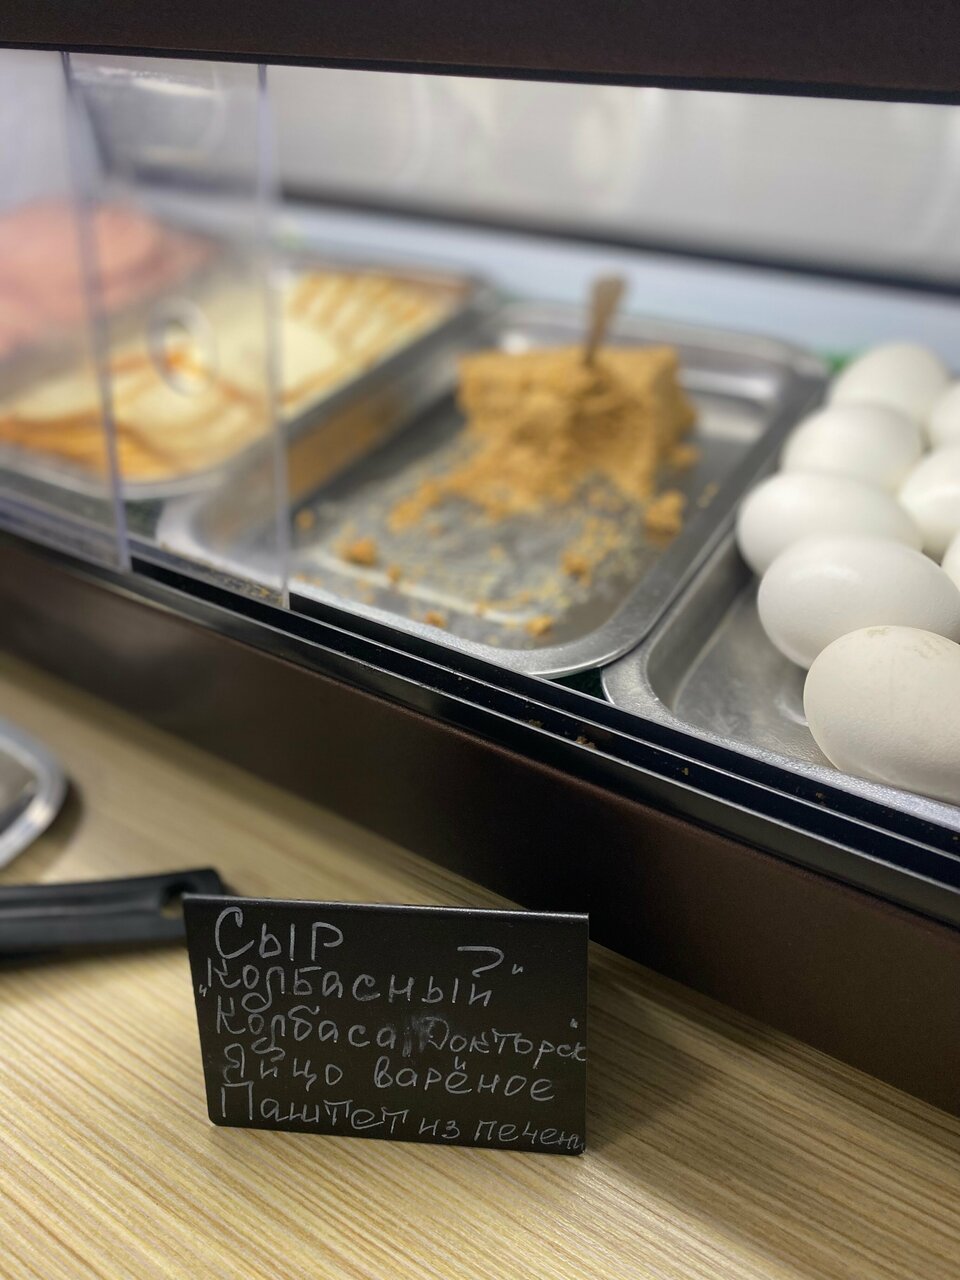 Сыр
"Колбасный"
Колбаса "Докторск
Яйцо варёное
Паштет из печени